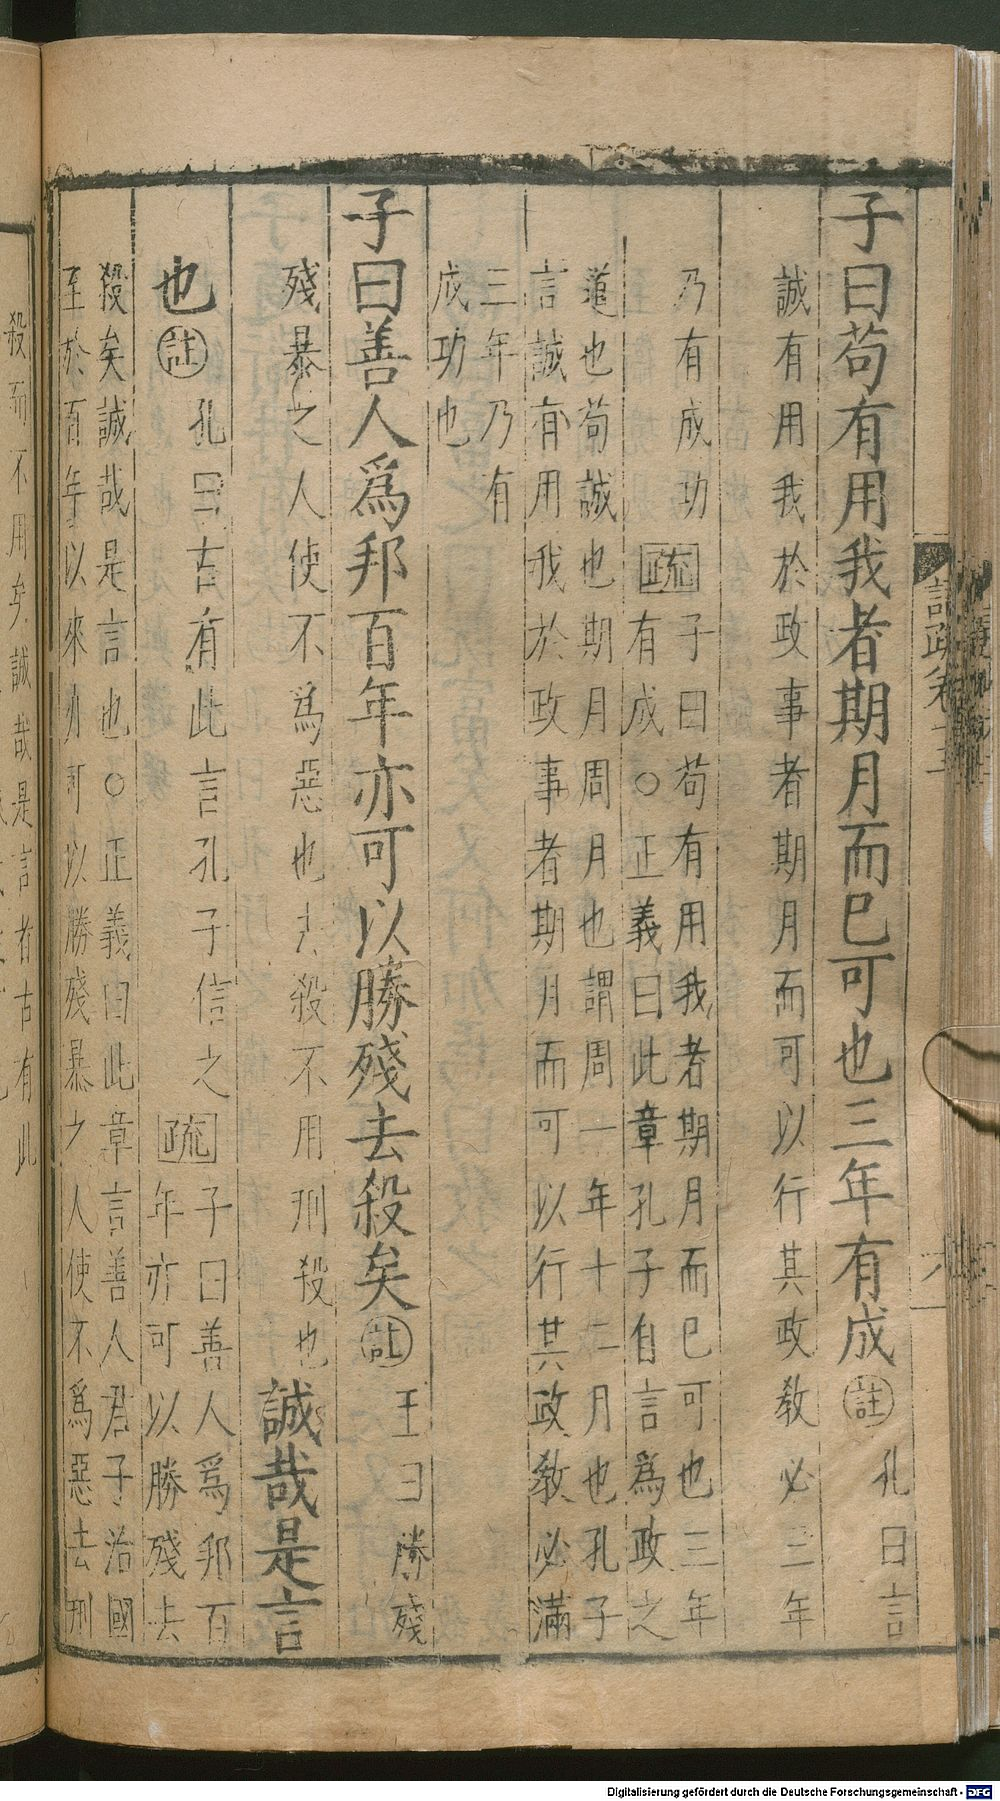 子曰苟有用我者期月而巳可也三年有成註孔曰言
誠有用我於政事者期月而可以行其政教必三年
乃有成功疏子曰苟有用我者期月而巳可也三年
有成○正義曰此章孔子自言爲政之
道也苟誠也期月周月也謂周一年十二月也孔子
言誠有用我於政事者期月而可以行其政教必滿
三年乃有
成功也
子曰善人爲邦百年亦可以勝殘去殺矣註王曰勝殘
殘暴之人使不爲惡也去殺不用刑殺也誠哉是言
也註孔曰古有此言孔子信之疏子曰善人爲邦百
年亦可以勝殘去
殺矣誠哉是言也○正義曰此章言善人君子治國
至於百年以來亦可以勝殘暴之人使不爲惡去刑
殺而不用矣誠哉是言者古有此
Digitalisierung gefördert durch die Deutsche Forschungsgemeinschaft - DFG